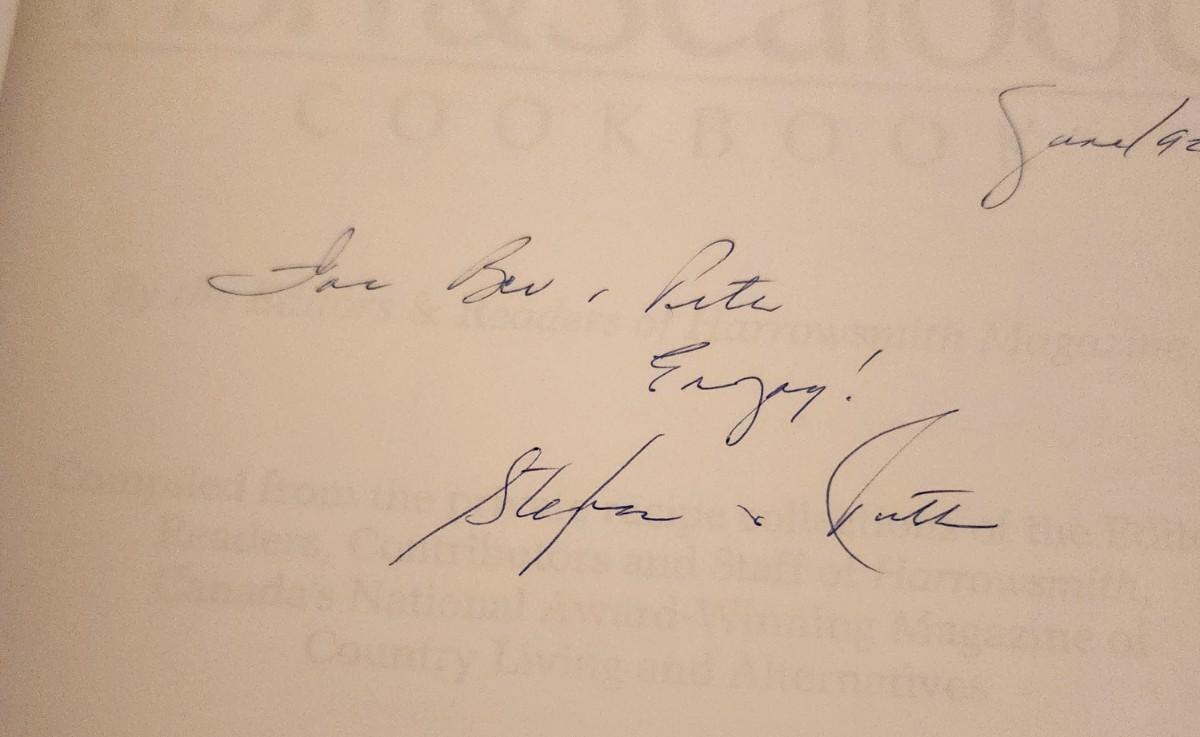 Fish & Seafood
COOKBOOK
June/92
For Bev & Pete
By the Editors & Readers of Harrowsmith Magazine
Enjoy!
Stefan & Ruth
Compiled from the private recipe collections of the Editors,
Readers, Contributors and Staff of Harrowsmith,
Canada's National Award-Winning Magazine of
Country Living and Alternatives